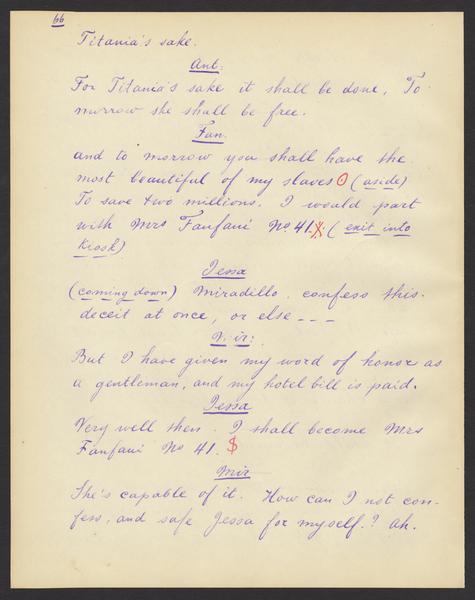 66
Titania's sake.
Ant:
For Titania's sake it shall be done. To
morrow she shall be free.
Fan.
and to morrow you shall have the
most beautiful of my slaves (aside)
To save two millions. I would part
with Mrs Fanfani No 41. (exit into
Kiosk)
Jessa
(coming down) Miradillo. confess this.
deceit at once, or else ---
Mir:
But I have given my word of honor as
a gentleman, and my hotel bill is paid.
Jessa
Very well then. I shall become Mrs
Fanfani No 41. $
Mir
She's capable of it. How can I not con-
fess, and safe Jessa for myself.? ah.